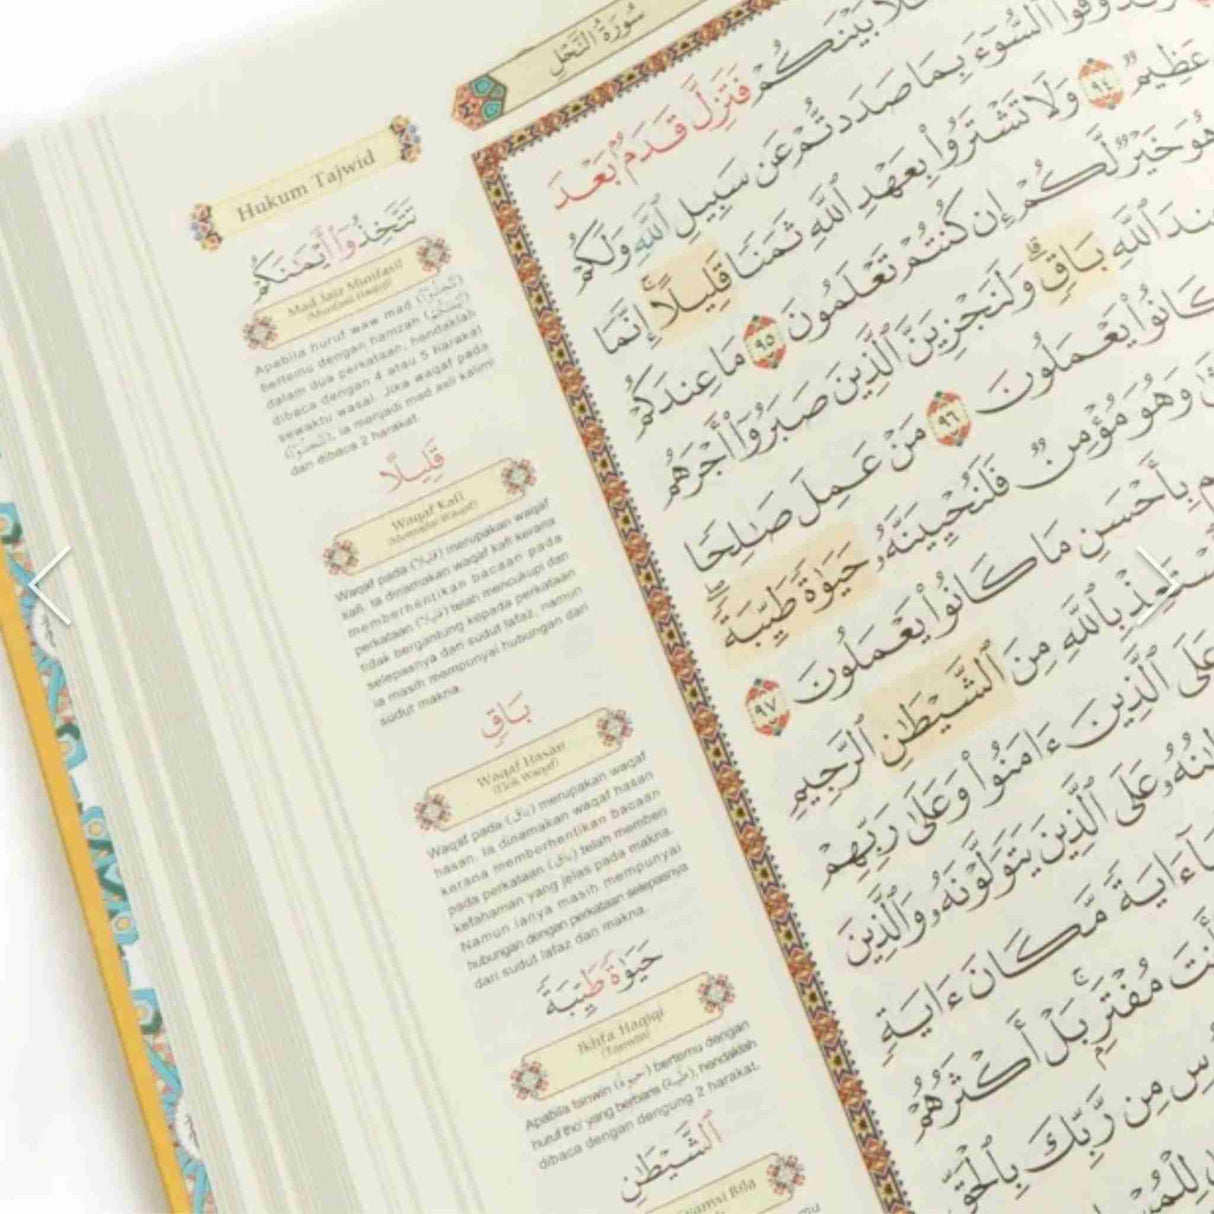 سُورَةُ النَّحْلِ
Hukum Tajwid
تَتَّخِذُوٓا۟ أَيْمَـٰنَكُمْ
Mad Jaiz Munfasil
(Munfasil Haqiqi)
Apabila huruf waw mad
bertemu dengan hamzah
dalam dua perkataan, hendaklah
dibaca dengan 4 atau 5 harakat
sewaktu wasal. Jika waqaf pada
ia menjadi mad asli kalimi
dan dibaca 2 harakat.
قَلِيلًا
Waqaf Kafi
(Memadai Waqaf)
Waqaf pada (قليلا) merupakan waqaf
kafi. Ia dinamakan waqaf kafi kerana
memberhentikan bacaan pada
perkataan (قليلا) telah mencukupi dan
tidak bergantung kepada perkataan
selepasnya dari sudut lafaz, namun
ia masih mempunyai hubungan dari
sudut makna.
بَاقٍ
Waqaf Hasan
(Elok Waqaf)
Waqaf pada (باق) merupakan waqaf
hasan. Ia dinamakan waqaf hasan
kerana memberhentikan bacaan
pada perkataan (باق) telah memberi
kefahaman yang jelas pada makna.
Namun ianya masih mempunyai
hubungan dengan perkataan selepasnya
dari sudut lafaz dan makna.
حَيَوٰةً طَيِّبَةً
Ikhfa Haqiqi
(Tanwin)
Apabila tanwin (حيوة) bertemu dengan
huruf tho' yang berbaris (طيبة), hendaklah
dibaca dengan dengung 2 harakat.
ٱلشَّيْطَـٰنِ
بَيْنَكُمْ فَتَزِلَّ قَدَمٌۢ بَعْدَ
وَتَذُوقُوا۟ ٱلسُّوٓءَ بِمَا صَدَدتُّمْ عَن سَبِيلِ ٱللَّهِ وَلَكُمْ
عَظِيمٌ ٩٤ وَلَا تَشْتَرُوا۟ بِعَهْدِ ٱللَّهِ ثَمَنًا قَلِيلًا ۚ إِنَّمَا
هُوَ خَيْرٌ لَّكُمْ إِن كُنتُمْ تَعْلَمُونَ ٩٥ مَا عِندَكُمْ
ٱللَّهِ بَاقٍ ۗ وَلَنَجْزِيَنَّ ٱلَّذِينَ صَبَرُوٓا۟ أَجْرَهُم
كَانُوا۟ يَعْمَلُونَ ٩٦ مَنْ عَمِلَ صَـٰلِحًا
وَهُوَ مُؤْمِنٌ فَلَنُحْيِيَنَّهُۥ حَيَوٰةً طَيِّبَةً ۖ
بِأَحْسَنِ مَا كَانُوا۟ يَعْمَلُونَ ٩٧
بِٱللَّهِ مِنَ ٱلشَّيْطَـٰنِ ٱلرَّجِيمِ
عَلَى ٱلَّذِينَ ءَامَنُوا۟ وَعَلَىٰ رَبِّهِمْ
عَلَى ٱلَّذِينَ يَتَوَلَّوْنَهُۥ وَٱلَّذِينَ
ءَايَةً مَّكَانَ ءَايَةٍ
أَنتَ مُفْتَرٍۭ ۚ بَلْ أَكْثَرُهُمْ
مِن رَّبِّكَ بِٱلْحَقِّ